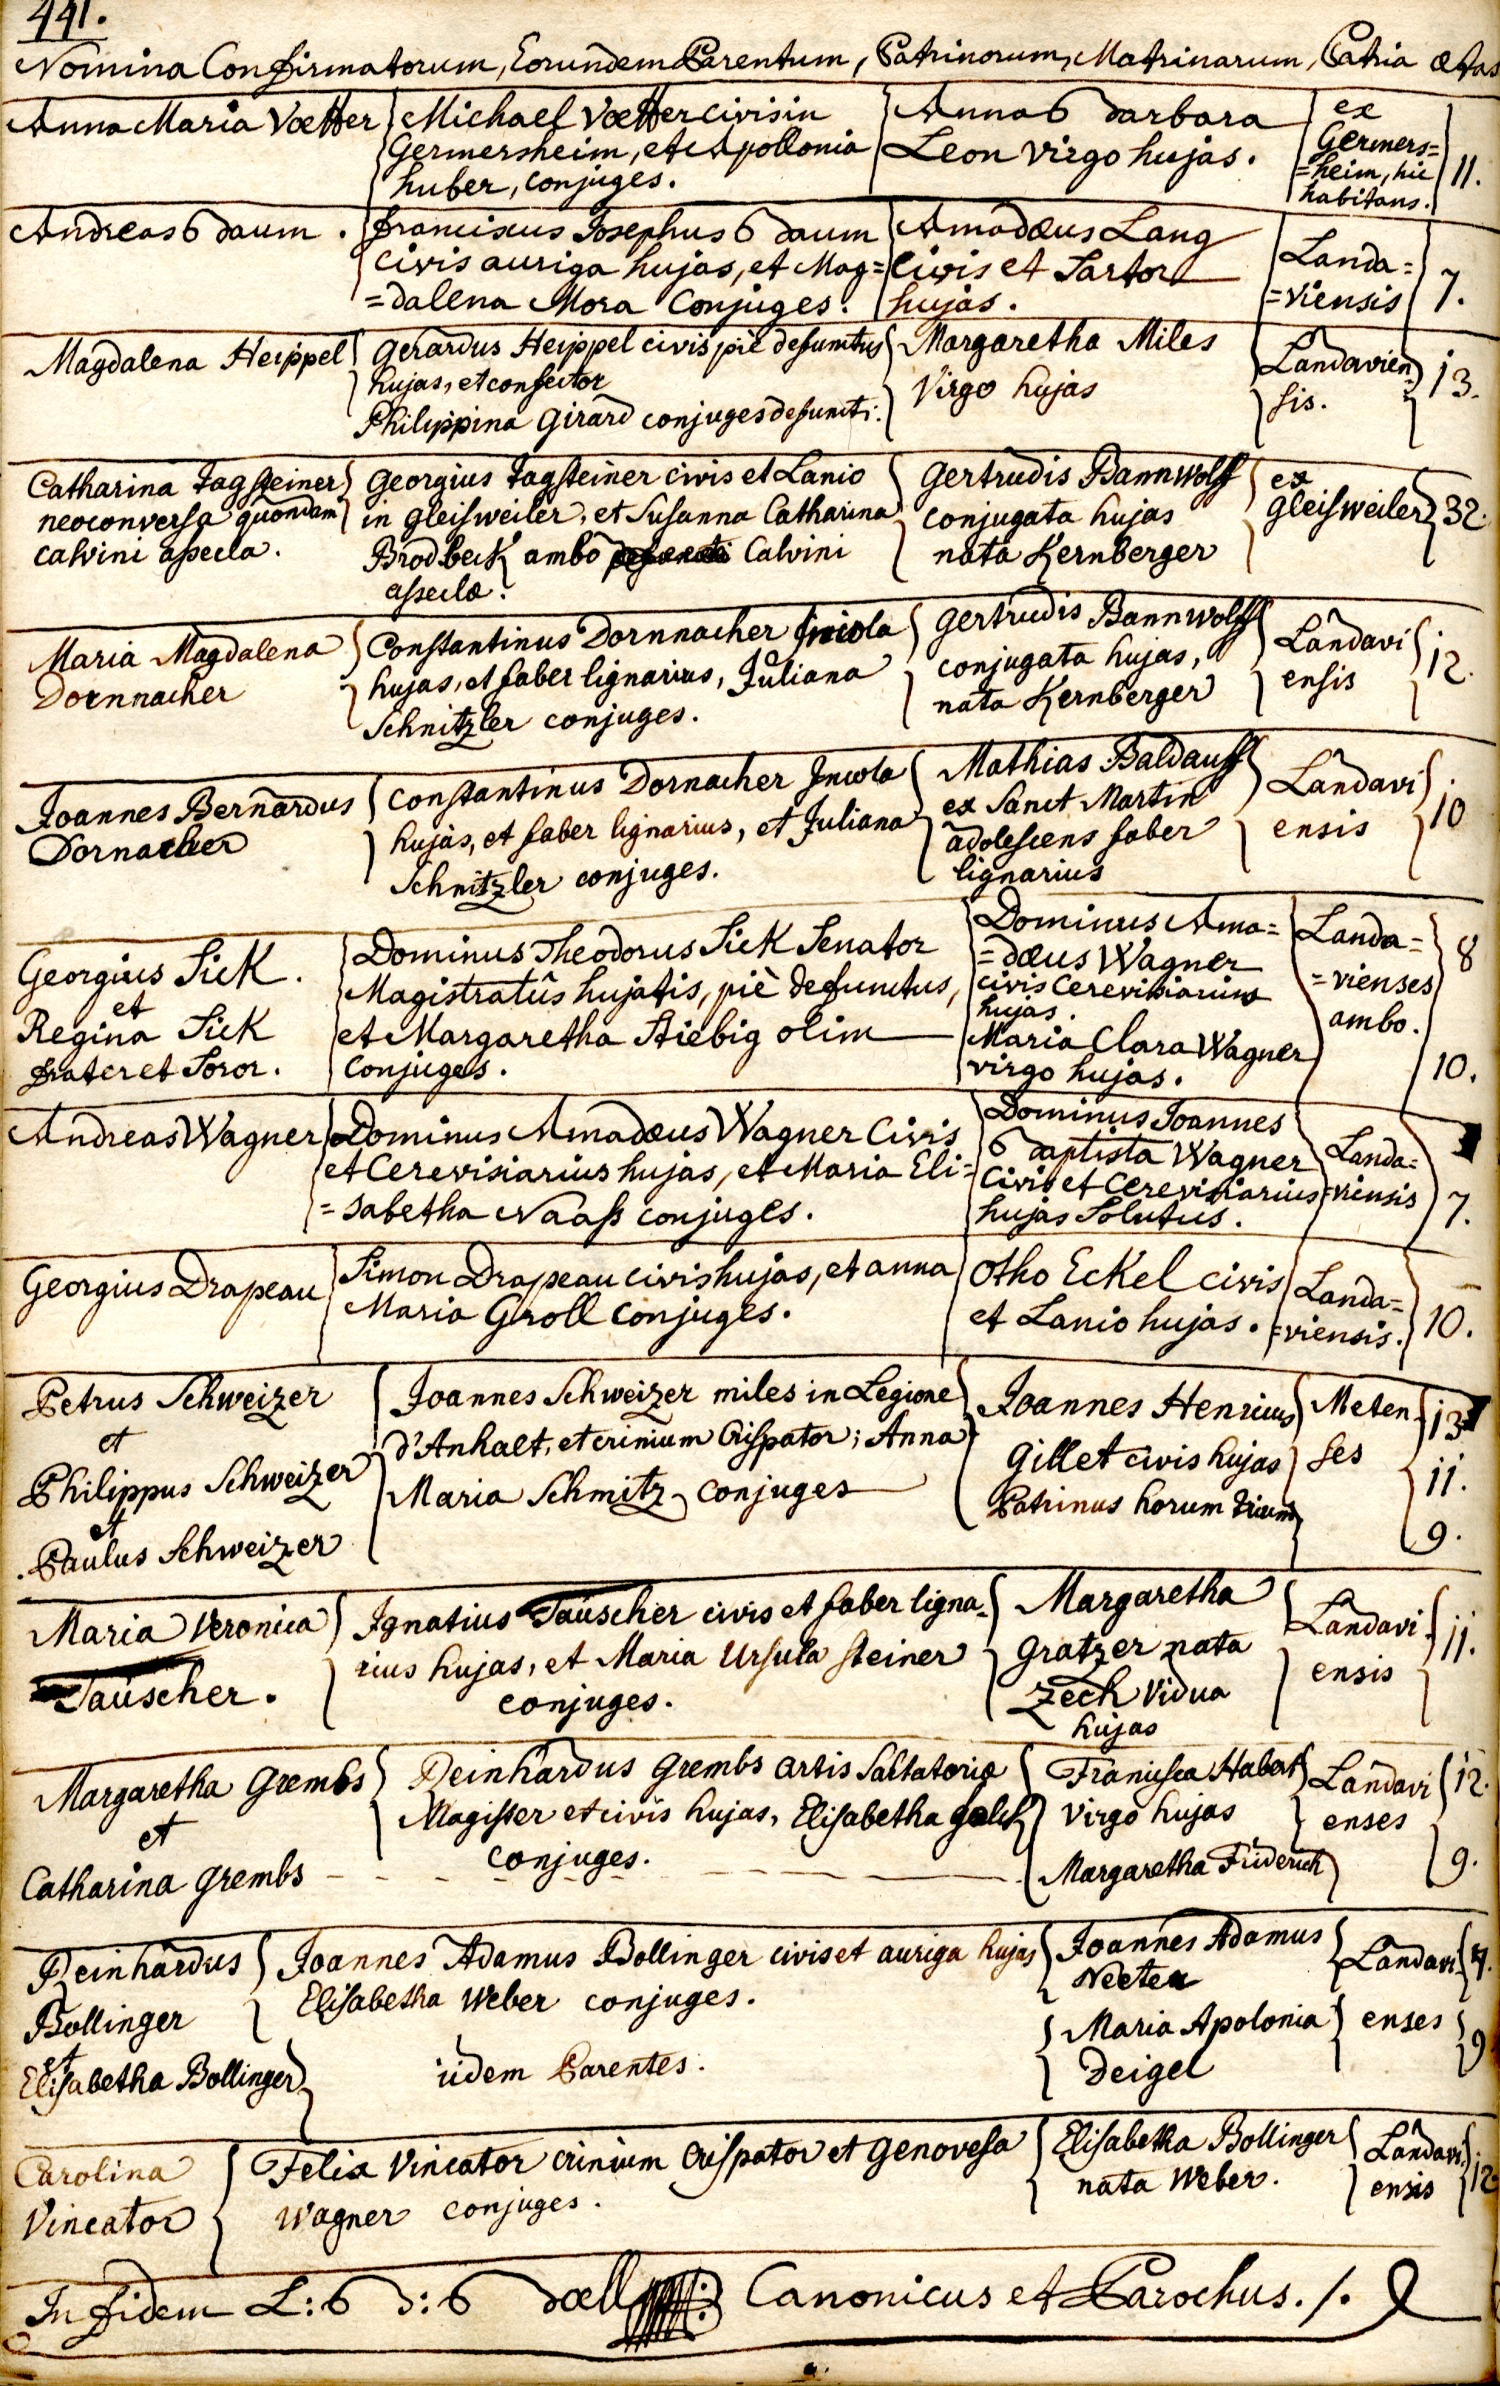 441.
Nomina Confirmatorum, Eorundem Parentum, Patrinorum, Matrinarum, Patria ætas
Anna Maria Vœtter
Michael Vœtter civis in
Germersheim, et Apollonia
huber, conjuges.
Anna Barbara
Leon virgo hujas.
ex
Germers=
=heim, hic
habitans.
11.
Andreas Baum.
franciscus Josephus Baum
civis auriga hujas, et Mag=
=dalena Mora Conjuges.
Amadæus Lang
Civis et Sartor
hujas.
Landa=
=viensis
7.
Magdalena Heippel
Gerardus Heippel civis piè defunctus
hujas, et confector
Philippina Girard conjuges defuncti.
Margaretha Miles
Virgo hujas
Landavien=
sis.
13.
Catharina Jagsteiner
neoconversa quondam
calvini assecla.
Georgius Jagsteiner civis et Lanio
in Gleisweiler, et Susanna Catharina
Brodbeck ambo Calvini
asseclæ.
Gertrudis Bannwolff
conjugata hujas
nata Kernberger
ex
Gleisweiler
32.
Maria Magdalena
Dornnacher
Constantinus Dornnacher Incola
hujas, et faber lignarius, Juliana
Schnitzler conjuges.
Gertrudis Bannwolff
conjugata hujas,
nata Kernberger
Landavi
ensis
12.
Joannes Bernardus
Dornacher
Constantinus Dornacher Incola
hujas, et faber lignarius, et Juliana
Schnitzler conjuges.
Mathias Baldauff
ex Sanct Martin
adolescens faber
lignarius
Landavi
ensis
10
Georgius Sick.
et
Regina Sick
frater et Soror.
Dominus Theodorus Sick Senator
Magistratûs hujatis, piè defunctus,
et Margaretha Stiebig olim
Conjuges.
Dominus Ama=
=dæus Wagner
civis Cerevisiarius
hujas.
Maria Clara Wagner
virgo hujas.
Landa=
=vienses
ambo.
8
10.
Andreas Wagner
Dominus Amadæus Wagner Civis
et Cerevisiarius hujas, et Maria Eli=
=sabetha Naass conjuges.
Dominus Joannes
Baptista Wagner
Civis et Cerevisiarius
hujas Solutus.
Landa=
=viensis
7.
Georgius Drapeau
Simon Drapeau civis hujas, et anna
Maria Groll conjuges.
Otho Eckel civis
et Lanio hujas.
Landa=
=viensis.
10.
Petrus Schweizer
et
Philippus Schweizer
et
Paulus Schweizer
Joannes Schweizer miles in Legione
d'Anhalt, et crinium Crispator; Anna
Maria Schmitz conjuges
Joannes Henricus
Gillet civis hujas
Patrinus horum trium
Meten
ses
13
11.
9.
Maria Veronica
Tauscher.
Ignatius Tauscher civis et faber ligna=
rius hujas, et Maria Ursula Steiner
conjuges.
Margaretha
Gratzer nata
Zech Vidua
hujas
Landavi
ensis
11.
Margaretha Grembs
et
Catharina Grembs
Reinhardus Grembs artis Saltatoriæ
Magister et civis hujas, Elisabetha Golch
conjuges.
Francisca Habert
Virgo hujas
Margaretha Friderich
Landavi
enses
12.
9.
Reinhardus
Bollinger
et
Elisabetha Bollinger
Joannes Adamus Bollinger civis et auriga hujas
Elisabetha Weber conjuges.
iidem Parentes.
Joannes Adamus
Necter
Maria Apolonia
Deigel
Landavi
enses
9
Carolina
Vincator
Felix Vincator crinium Crispator et Genovefa
Wagner conjuges.
Elisabetha Bollinger
nata Weber.
Landavi
ensis
12
In fidem L: B: B Bœll Canonicus et Parochus./.